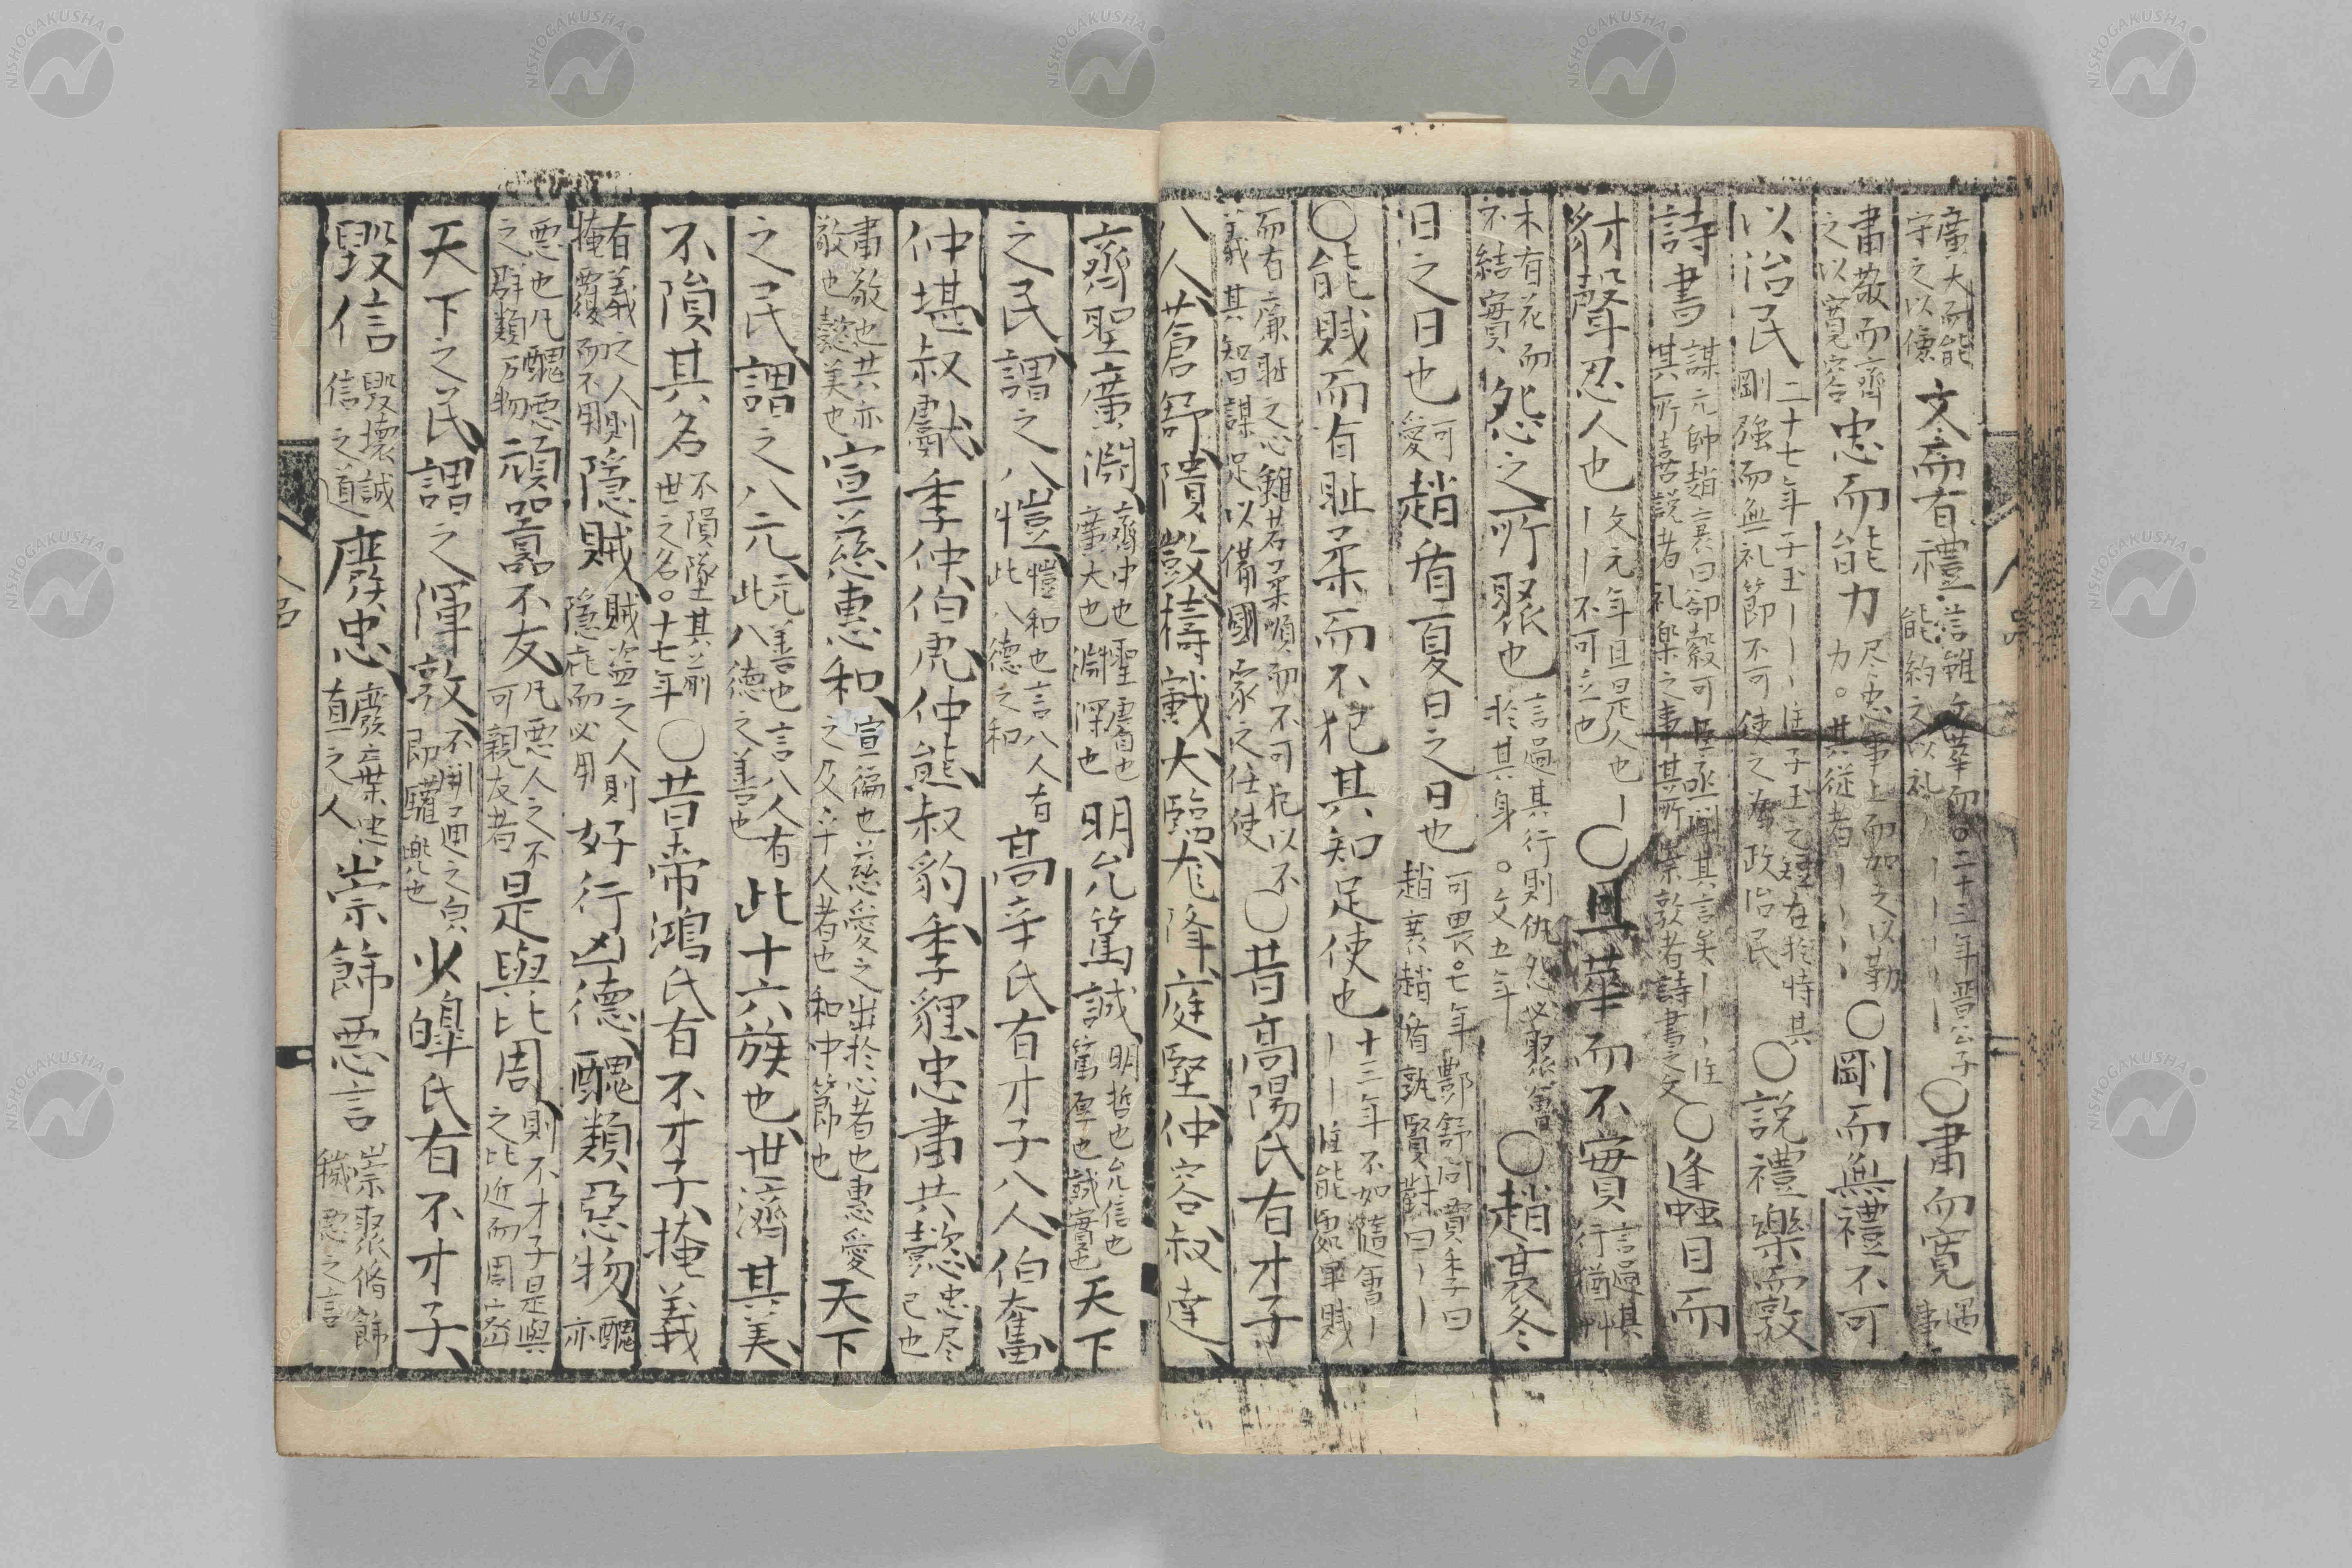 廣大而能守之以儉文而有禮信雖文華而能約之以礼丨丨丨丨○二十三年晋公子○肅而寛遇事
肅敬而齊之以寛容忠而能力尽忠事上而加之以勤力○其従者丨丨丨丨○剛而無禮不可
以治民二十七年子玉丨丨丨注子玉之短在於恃其剛強而無礼節不可使之為政治民○説禮樂而敦
詩書謀元帥趙衰曰郤縠可臣亟聞其言矣丨丨丨注其所喜説者礼樂之事其所崇敦者詩書之文○逢蜂目而
豺聲忍人也文元年且是人也丨丨丨不可立也○且華而不實言過其行猶艸
木有花而不結實怨之所聚也言過其行則仇怨必聚會於其身○文五年○趙衰冬
日之日也可愛趙盾夏日之日也可畏○七年酆舒問賈季曰趙衰趙盾孰賢對曰丨丨
○能賎而有耻柔而不犯其知足使也十三年不如隨會丨丨丨注能處卑賎
而有廉耻之心雖若柔順而不可犯以不義其知謀足以備國家之任使○昔高陽氏有才子
八人蒼舒隤敳檮戭大臨尨降庭堅仲容叔達
齊聖廣淵齊中也聖通也廣大也淵深也明允篤誠明哲也允信也篤厚也誠實也天下
之民謂之八愷愷和也言八人有此八德之和高辛氏有才子八人伯奮
仲堪叔獻季仲伯虎仲熊叔豹季貍忠肅共懿忠尽己也
肅敬也共亦敬也懿美也宣慈惠和宣徧也慈愛之出於心者也惠愛之及乎人者也和中節也天下
之民謂之八元元善也言八人有此八德之善也此十六族也世濟其美
不隕其名不隕墜其前世之名○十七年○昔帝鴻氏有不才子掩義
有義之人則掩覆而不用隠賊賊盗之人則隠庇而必用好行凶德醜類惡物醜亦
惡也凡醜惡之群類万物頑嚚不友凡惡人之不可親友者是與比周則不才子是與之比近而周密
天下之民謂之渾敦不開通之皃即驩兠也少皥氏有不才子
毀信毀壞誠信之道廢忠廢弃忠直之人崇飾惡言崇聚脩飾穢惡之言